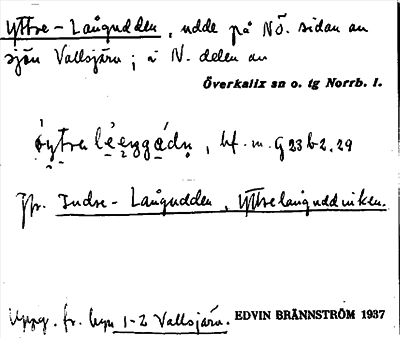 Yttre-Långudden, udde på NÖ. sidan av
sjön Vallsjärv; i N. delen av
Överkalix sn o. tg Norrb. l.
bf. m. G23b2.29
Jfr. Indre-Långudden, Yttrelånguddviken.
Uppg. fr. byn 1-2 Vallsjärv. EDVIN BRÄNNSTRÖM 1937